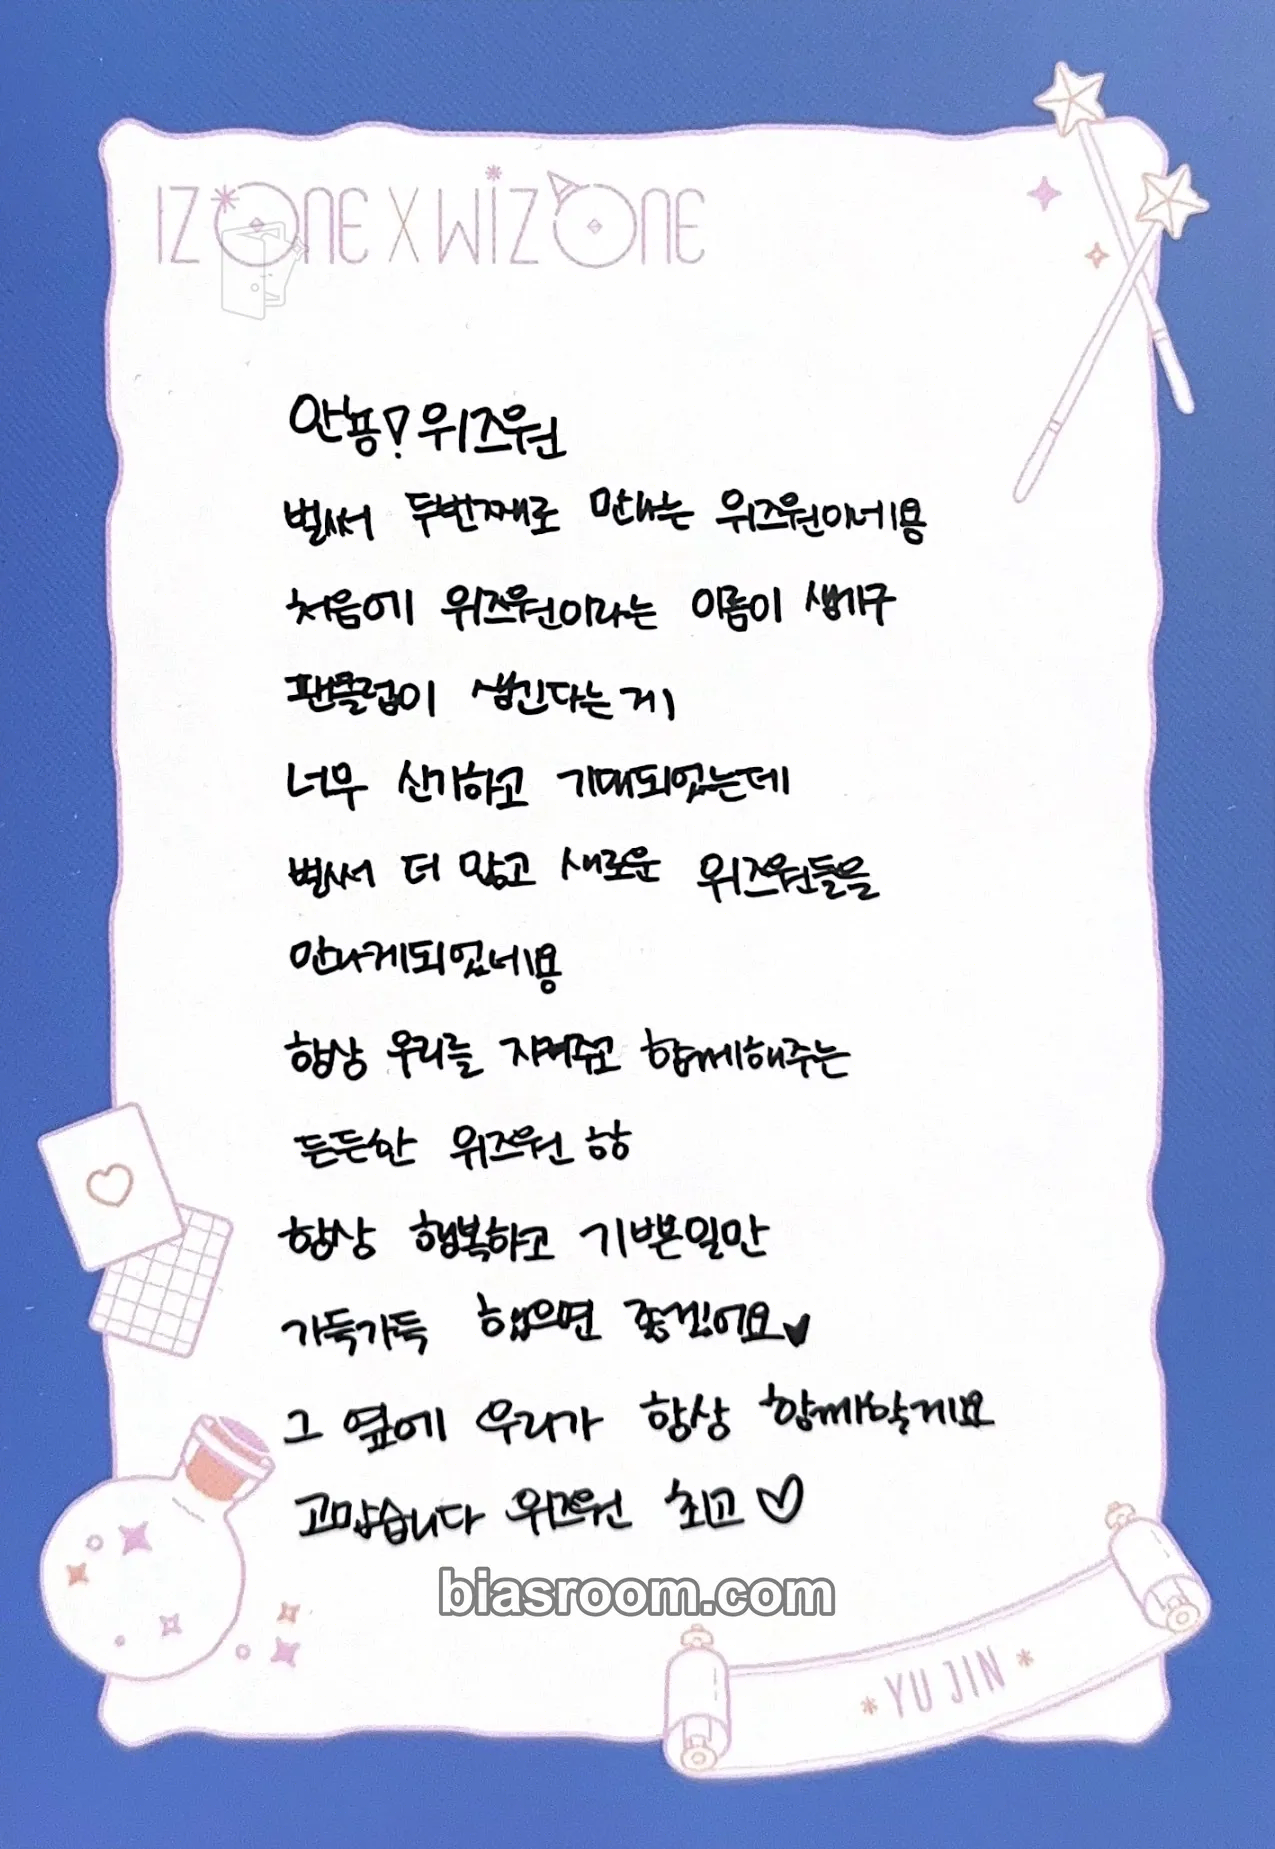 IZONE X WIZONE
안뇽! 위즈원
벌써 두번째로 만나는 위즈원이네용
처음에 위즈원이라는 이름이 생기구
팬클럽이 생긴다는게
너무 신기하고 기대되었는데
벌써 더 많고 새로운 위즈원들을
만나게되었네용
항상 우리를 지켜주고 함께해주는
든든한 위즈원 항
항상 행복하고 기쁜일만
가득가득 했으면 좋겠어요
그 옆에 우리가 항상 함께할게요
고맙습니다 위즈원 최고♡
biasroom.com
* YU JIN *